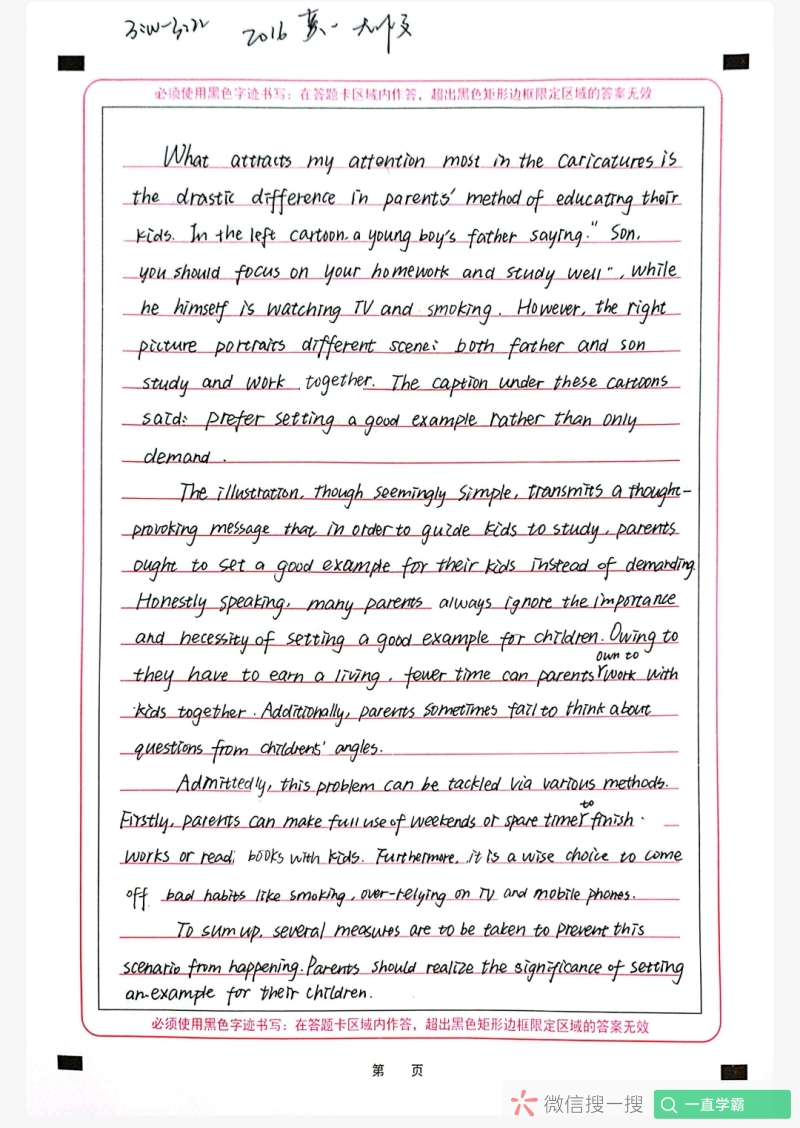 2016 英一 大作文
必须使用黑色字迹书写：在答题卡区域内作答，超出黑色矩形边框限定区域的答案无效
What attracts my attention most in the caricatures is
the drastic difference in parents' method of educating their
kids. In the left cartoon, a young boy's father saying: "Son,
you should focus on your homework and study well", while
he himself is watching TV and smoking. However, the right
picture portraits different scene: both father and son
study and work together. The caption under these cartoons
said: prefer setting a good example rather than only
demand.
The illustration, though seemingly simple, transmits a thought-
provoking message that in order to guide kids to study, parents
ought to set a good example for their kids instead of demanding
Honestly speaking, many parents always ignore the importance
and necessity of setting a good example for children. Owing to
they have to earn a living, fewer time can parents own to work with
kids together. Additionally, parents sometimes fail to think about
questions from childrens' angles.
Admittedly, this problem can be tackled via various methods.
Firstly, parents can make full use of weekends or spare time to finish
works or read books with kids. Furthermore, it is a wise choice to come
off bad habits like smoking, over-relying on TV and mobile phones.
To sum up, several measures are to be taken to prevent this
scenario from happening. Parents should realize the significance of setting
an example for their children.
必须使用黑色字迹书写：在答题卡区域内作答，超出黑色矩形边框限定区域的答案无效
第 页
微信搜一搜 一直学霸